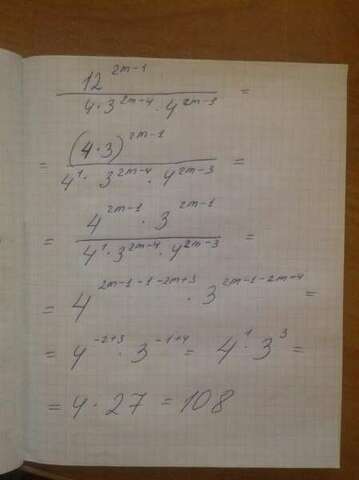 12^{2m-1} / (4·3^{2m-4}·4^{2m-3}) =
= (4·3)^{2m-1} / (4^1·3^{2m-4}·4^{2m-3}) =
= 4^{2m-1}·3^{2m-1} / (4^1·3^{2m-4}·4^{2m-3}) =
= 4^{2m-1-1-2m+3}·3^{2m-1-2m-4} =
= 4^{-2+3}·3^{-1+4} = 4^1·3^3 =
= 4·27 = 108